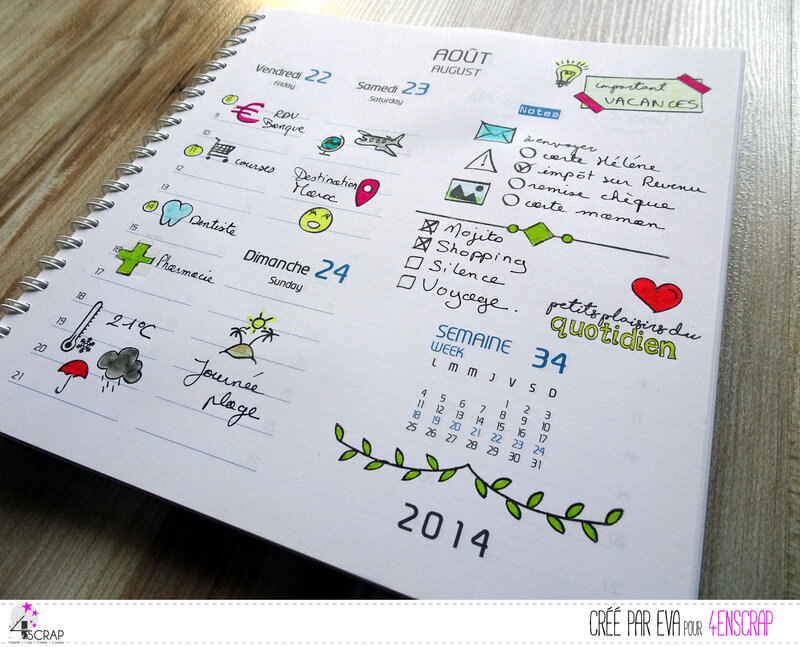 AOÛT
AUGUST
Vendredi 22
Friday
8
9 € RDV
Banque
10
11 courses
12
13
14 Dentiste
15
16 Pharmacie
17
18
19 21°C
20
21
Samedi 23
Saturday
Destination
Maroc
Dimanche 24
Sunday
Journée
plage
important
VACANCES
Notes
à envoyer
carte Hélène
impôt sur Revenu
remise chèque
carte maman
Mojito
Shopping
Silence
Voyage.
petits plaisirs du
quotidien
SEMAINE 34
WEEK
L M M J V S D
1 2 3
4 5 6 7 8 9 10
11 12 13 14 15 16 17
18 19 20 21 22 23 24
25 26 27 28 29 30 31
2014
4enSCRAP
CRÉÉ PAR EVA POUR 4ENSCRAP